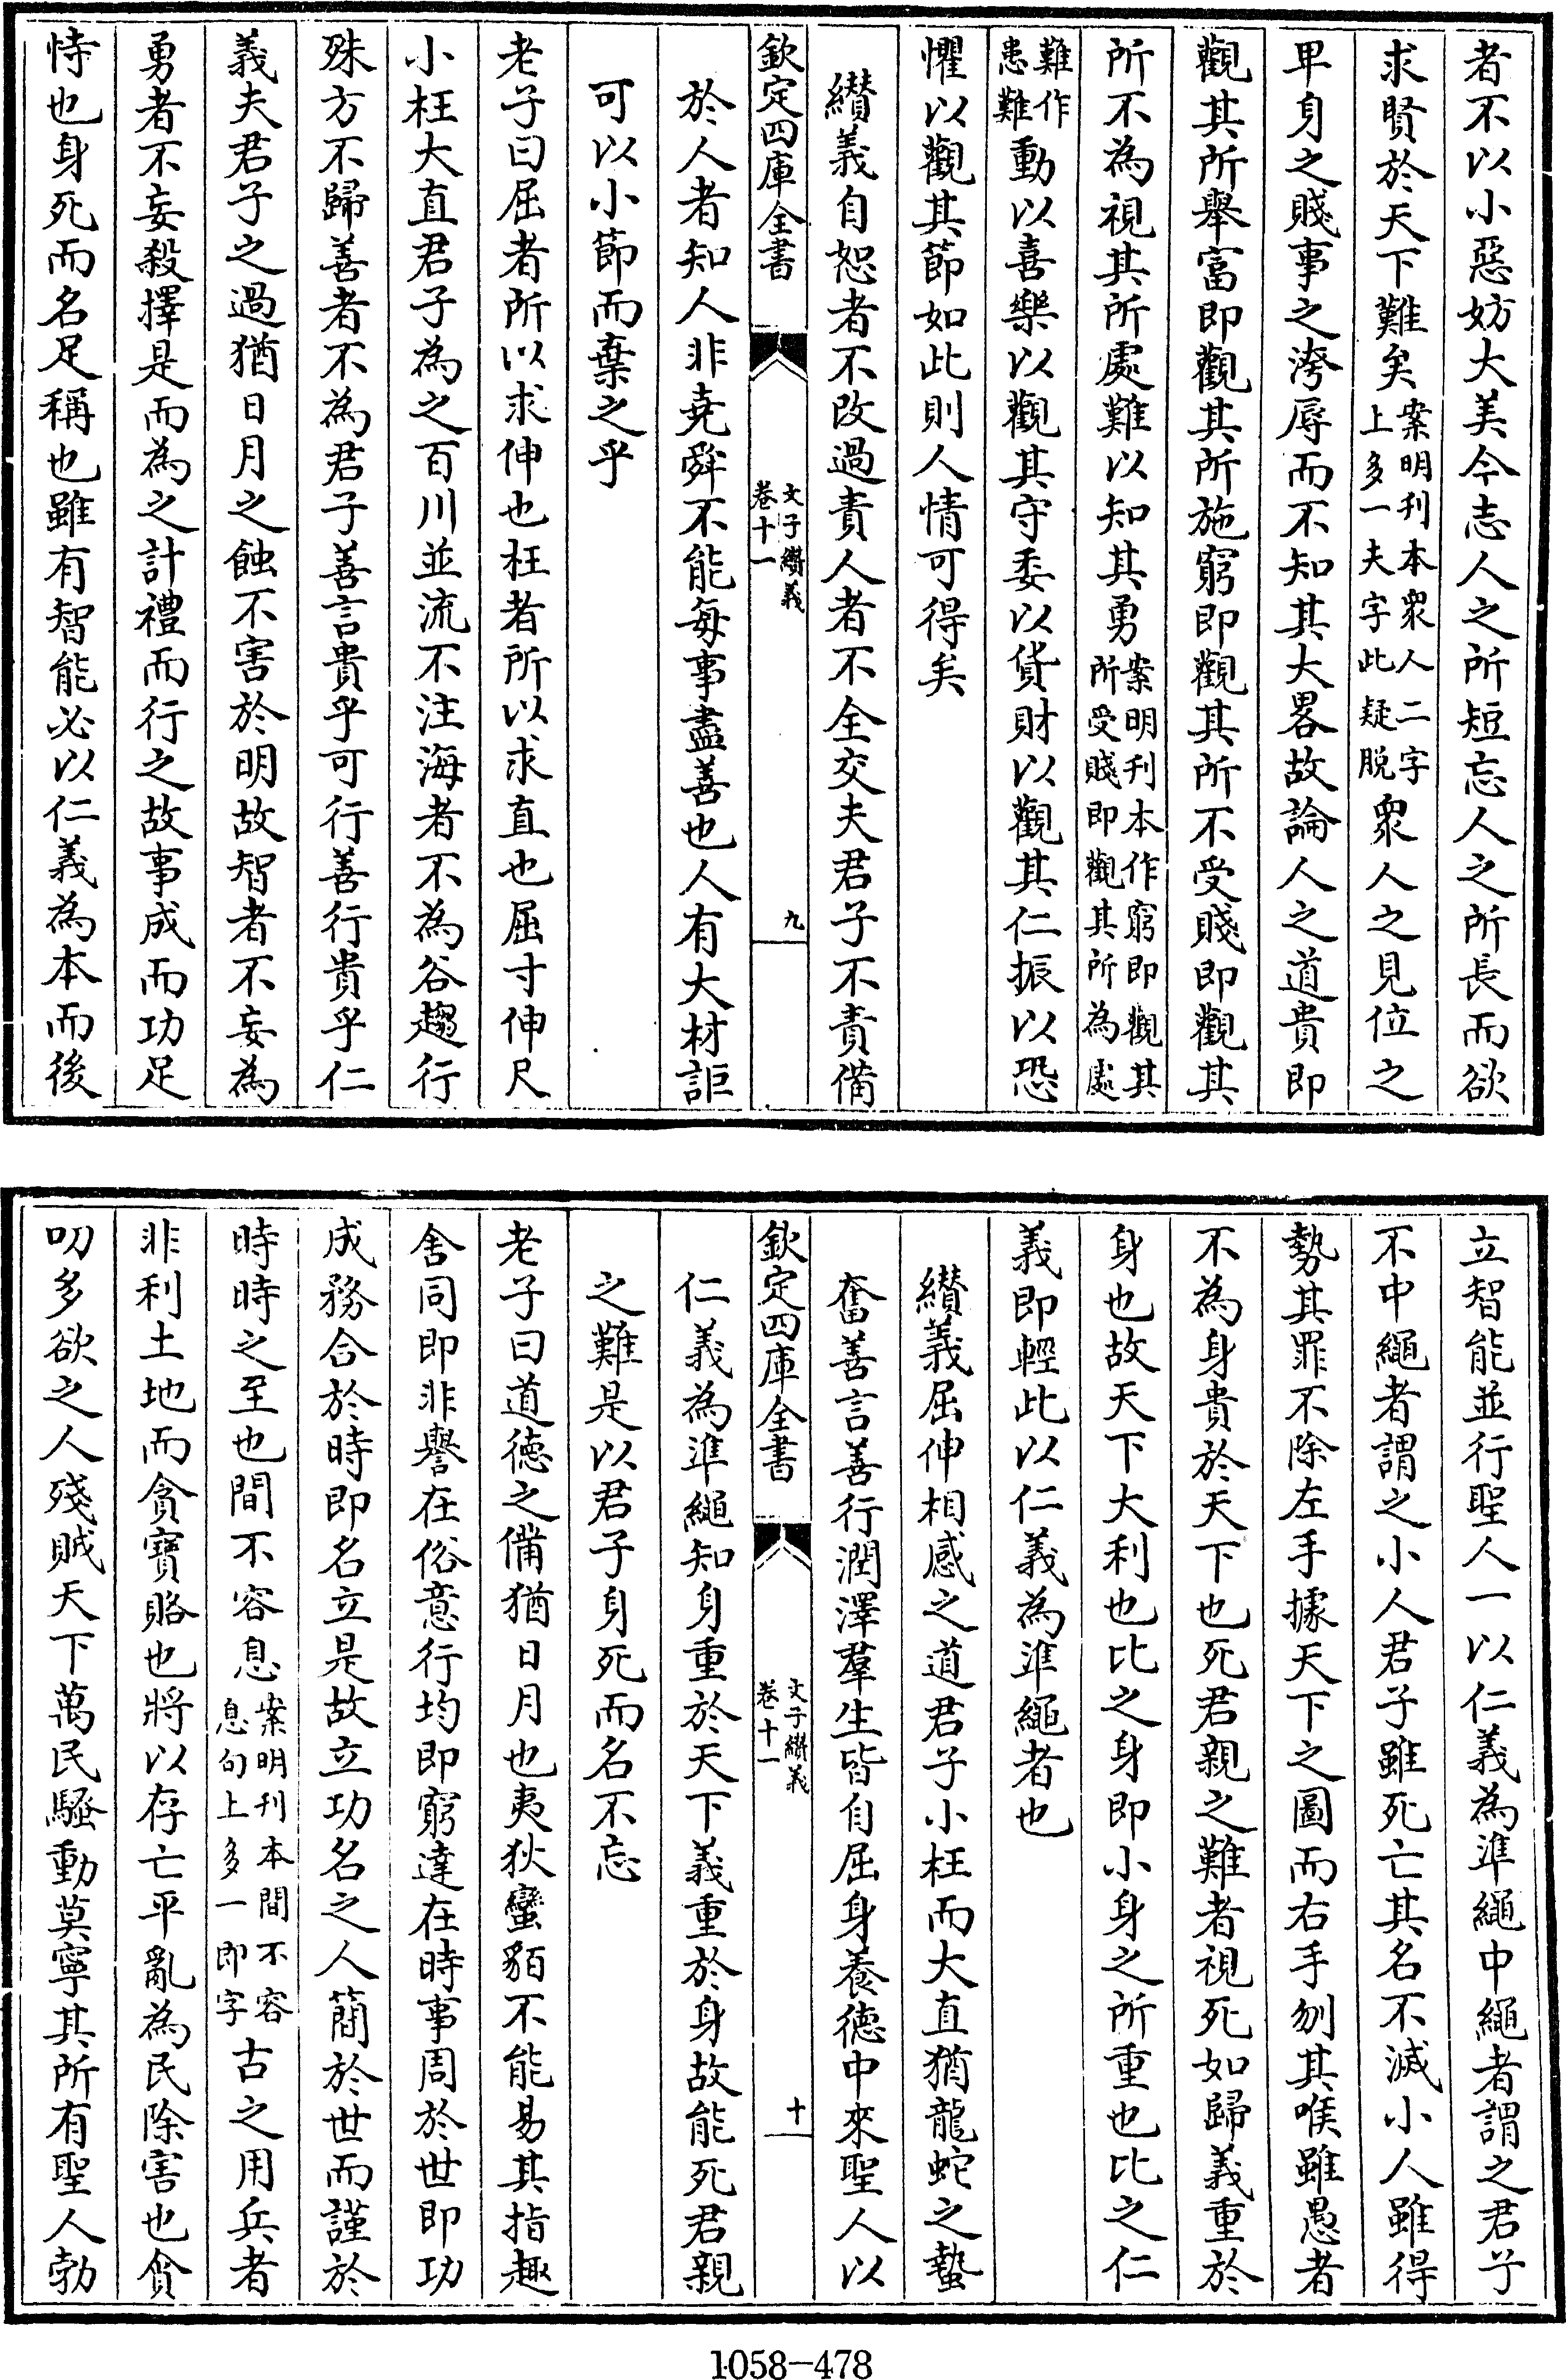 者不以小惡妨大美今志人之所短忘人之所長而欲
求賢於天下難矣案明刊本衆人二字上多一夫字此疑脱衆人之見位之
卑身之賤事之洿辱而不知其大畧故論人之道貴即
觀其所舉富即觀其所施窮即觀其所不受賤即觀其
所不為視其所處難以知其勇案明刊本作窮即觀其所受賤即觀其所為處
難作患難動以喜樂以觀其守委以貨財以觀其仁振以恐
懼以觀其節如此則人情可得矣
纘義自恕者不改過責人者不全交夫君子不責備
欽定四庫全書
文子纘義
卷十一
九
於人者知人非堯舜不能每事盡善也人有大材詎
可以小節而棄之乎
老子曰屈者所以求伸也枉者所以求直也屈寸伸尺
小枉大直君子為之百川並流不注海者不為谷趨行
殊方不歸善者不為君子善言貴乎可行善行貴乎仁
義夫君子之過猶日月之蝕不害於明故智者不妄為
勇者不妄殺擇是而為之計禮而行之故事成而功足
恃也身死而名足稱也雖有智能必以仁義為本而後
立智能並行聖人一以仁義為準繩中繩者謂之君子
不中繩者謂之小人君子雖死亡其名不滅小人雖得
勢其罪不除左手據天下之圖而右手刎其喉雖愚者
不為身貴於天下也死君親之難者視死如歸義重於
身也故天下大利也比之身即小身之所重也比之仁
義即輕此以仁義為準繩者也
纘義屈伸相感之道君子小枉而大直猶龍蛇之蟄
奮善言善行潤澤羣生皆自屈身養德中來聖人以
欽定四庫全書
文子纘義
卷十一
十
仁義為準繩知身重於天下義重於身故能死君親
之難是以君子身死而名不忘
老子曰道德之備猶日月也夷狄蠻貊不能易其指趣
舍同即非譽在俗意行均即窮達在時事周於世即功
成務合於時即名立是故立功名之人簡於世而謹於
時時之至也間不容息案明刊本間不容息句上多一即字古之用兵者
非利土地而貪寶賂也將以存亡平亂為民除害也貪
叨多欲之人殘賊天下萬民騷動莫寧其所有聖人勃
1058-478